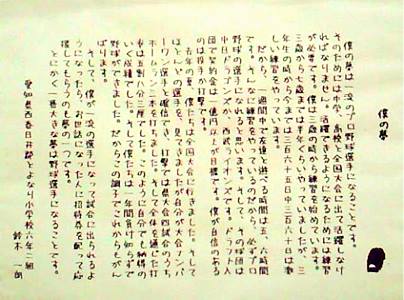 僕の夢
僕の夢は、一流のプロ野球選手になることです。
そのためには中学、高校と全国大会に出て活躍しなけ
ればなりません。活躍できるようになるためには練習
が必要です。僕は三歳の時から練習を始めています。
三歳から七歳までは半年くらいやっていましたが、三
年生の時から今までは三百六十五日中三百六十日は激
しい練習をやっています。
だから、一週間中で友達と遊べる時間は五、六時間
です。そんなに練習をやっているのだから、必ずプロ
野球の選手になれると思います。そして、その球団は
中日ドラゴンズか、西武ライオンズです。ドラフト入
団で契約金は一億円以上が目標です。僕が自信のある
のは投手か打撃です。
去年の夏、僕たちは全国大会に行きました。そして
ほとんどの選手を、見てきましたが自分が大会ナンバ
ーワン選手と確信でき、打撃では県大会四試合のうち
ホームラン三本を打ちました。そして、全体を通した打
率は五割八分三厘でした。このように自分でも納得の
いく成績でした。そして、僕たちは一年間負け知らずで
野球ができました。だからこの調子でこれからもがん
ばります。
そして、僕が一流の選手になって試合に出られるよ
うになったら、お世話になった人に招待券を配って応
援してもらうのも夢の一つです。
とにかく一番大きな夢は野球選手になることです。
愛知県西春日井郡とよなり小学校六年二組
鈴木一朗